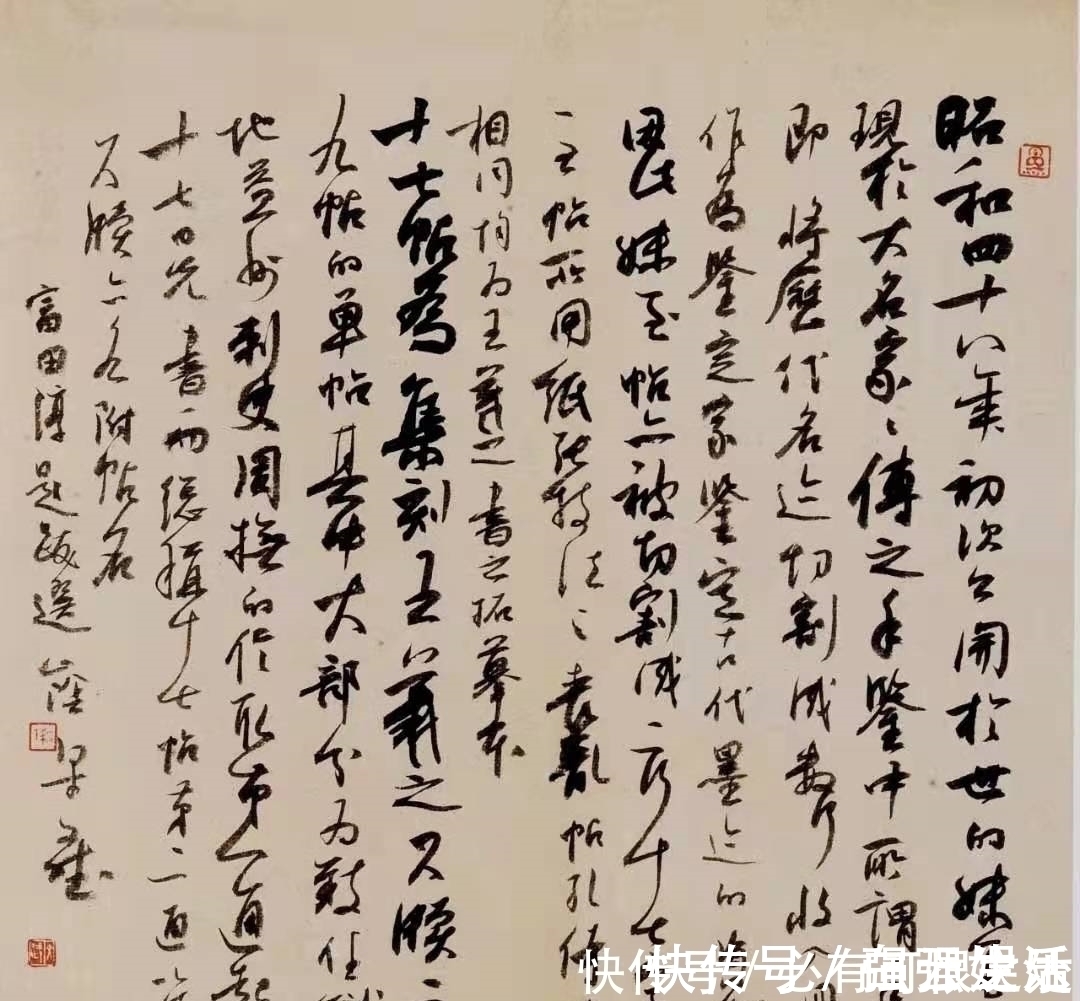 昭和四十八年初次公開於世的妹至
現於大名家之傳之手鑒中所謂
即將歷代名迹切割成數行收入
作為鑒定家鑒定古代墨迹的
因此妹至帖亦被切割成二行十七
二王帖所同紙張技法之喪亂帖孔侍
相同均為王羲之書之拓摹本
十七帖為集刻王羲之尺牘二
九帖的單帖其中大部分為致住
地益州刺史周撫的信取第一通起
十七日先書而總稱十七帖第二通
尺牘亦各附帖名
富田淳題跋選
快传号